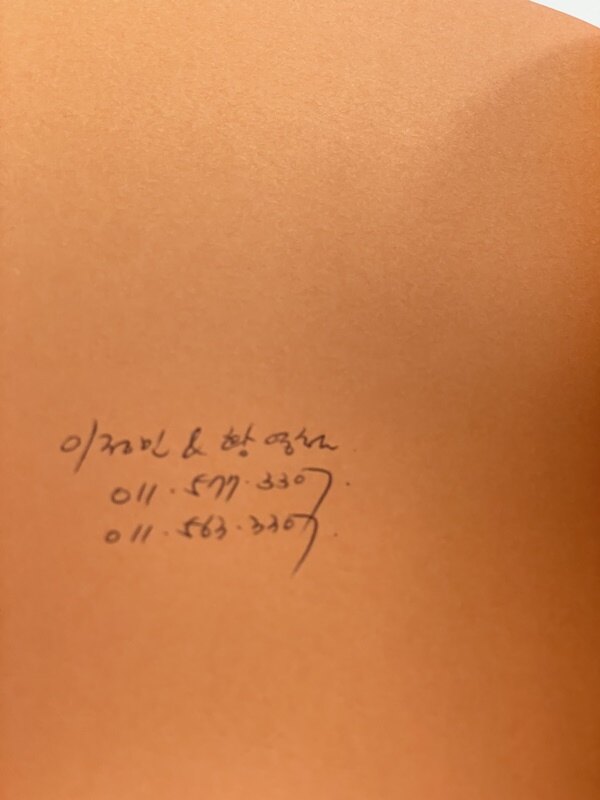 이정민 & 황
011. 577. 3307.
011. 563. 3307.